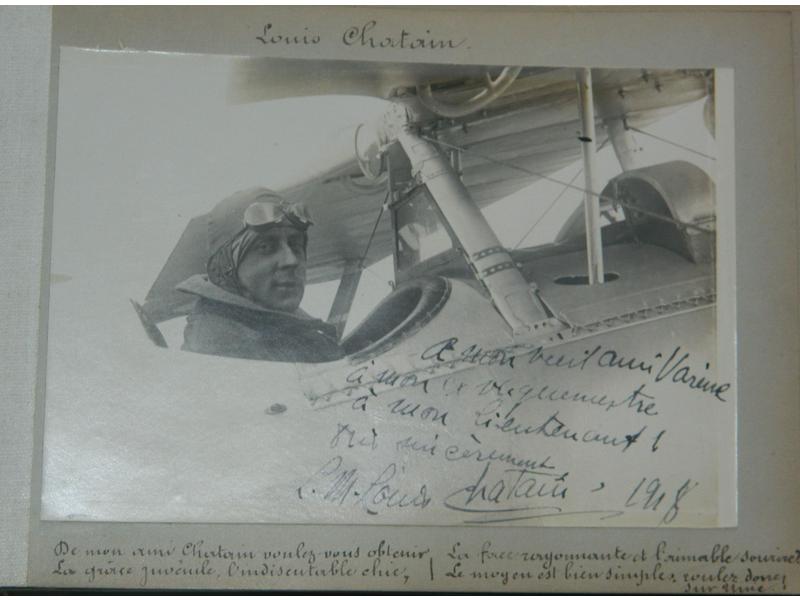 Louis Chatain.
à mon vieil ami Varène
à mon ex vaguemestre
à mon Lieutenant !
très sincèrement
L. M. Louis Chatain 1918
De mon ami Chatain voulez-vous obtenir,
La grâce juvénile, l'indiscutable chic,
La face rayonnante et l'aimable sourire?
Le moyen est bien simple, roulez donc,
sur